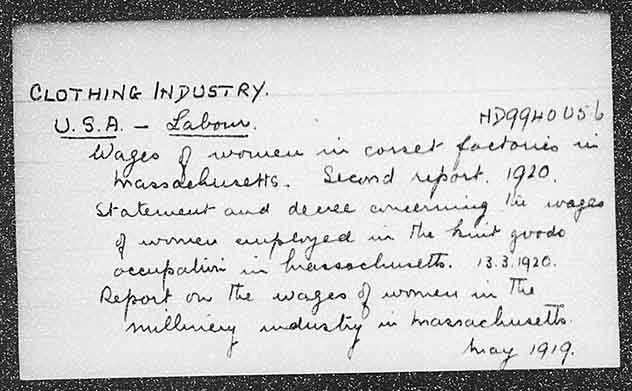 CLOTHING INDUSTRY.
U.S.A. – Labour. HD9940U56
Wages of women in corset factories in
Massachusetts. Second report. 1920.
Statement and decree concerning the wages
of women employed in the knit goods
occupation in Massachusetts. 13.3.1920.
Report on the wages of women in the
millinery industry in Massachusetts.
May 1919.